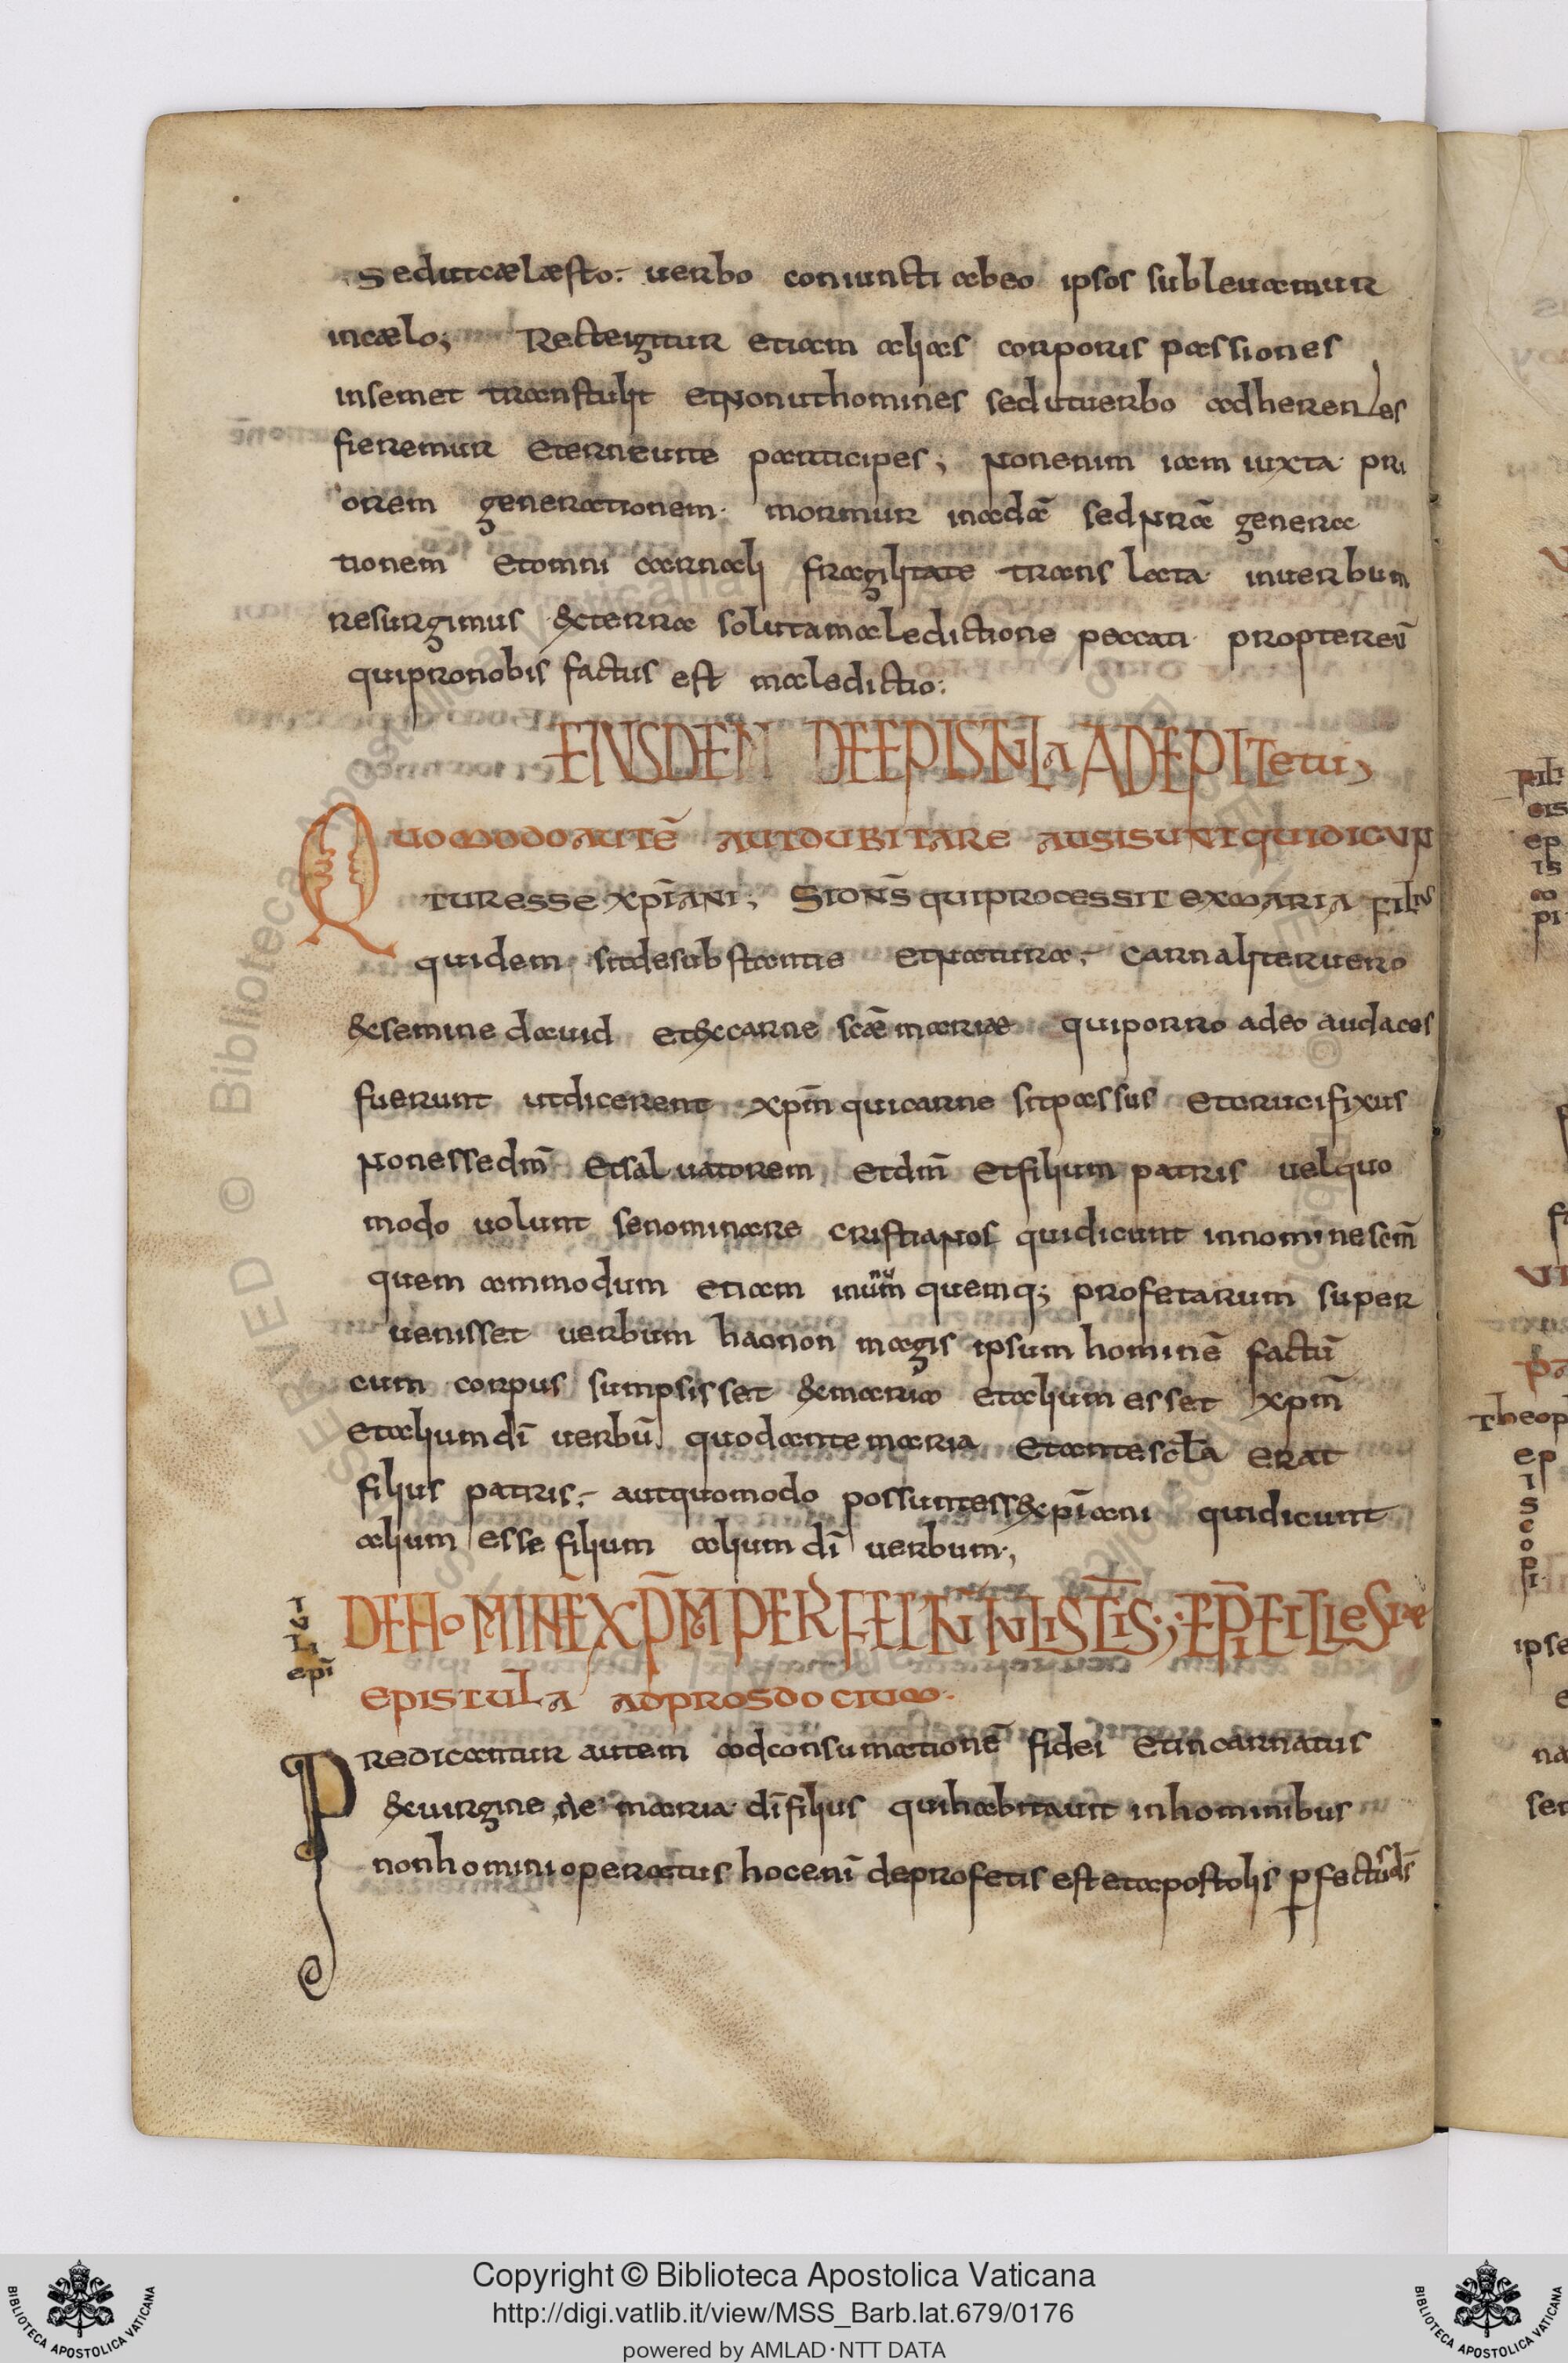 sedutcælæsto. verbo coniuncti abeo ipsos sublevamur
incælo; Recteigitur etiam alias corporis passiones
insemet transtulit etnonuthomines sedutuerbo adherentes
fieremur eterneuite participes; nonenim iam iuxta pri
orem generationem. morimur inadā sednrā genera
tionem etomni carnali fragilitate translata inuerbum
resurgimus &terra solutamaledictione peccati propter eū
quipronobis factus est maledictio:
EIUSDEM DEEPISTULA ADEPITetū;
QUOMODOAUTĒ AUTDUBITARE AUSISUNTQUIDICUN
TURESSE XPĪANI; SIDN̄S QUIPROCESSIT EXMARIA FILIUS
quidem sitdesubstantie etnatura; carnaliteruero
exsemine dauid etexcarne scǣ mariæ quiporro adeo audaces
fuerunt utdicerent xpm̄ quicarne sitpassus etcrucifixus
nonessedm̄ etsaluatorem etdm̄ etfilium patris uelquo
modo uolunt senominare cristianos quidicunt innominescm̄
quem ammodum etiam inunum quemq; profetarum super
uenisset uerbum hacnon magis ipsum hominē factū
cum corpus sumpsisset exmaria etalium esset xpm̄
etaliumdī uerbū quodantemaria etantescl̄a erat
filius patris; autquomodo possuntessexpīani quidicunt
alium esse filium alium dī uerbum;
DEHOMINĒXP̄M PERFECTŪ
EPISTULA ADPROSDOCIUM.
IULI epī
PREDICANTUR autem adconsumationē fidei etincarnatus
exuirgine de maria dīfilius quihabitauit inhominibus
nonhominioperatus hocenī deprofetis estetapostolis perfectusds̄
Copyright © Biblioteca Apostolica Vaticana
http://digi.vatlib.it/view/MSS_Barb.lat.679/0176
powered by AMLAD·NTT DATA
BIBLIOTECA APOSTOLICA VATICANA
BIBLIOTECA APOSTOLICA VATICANA